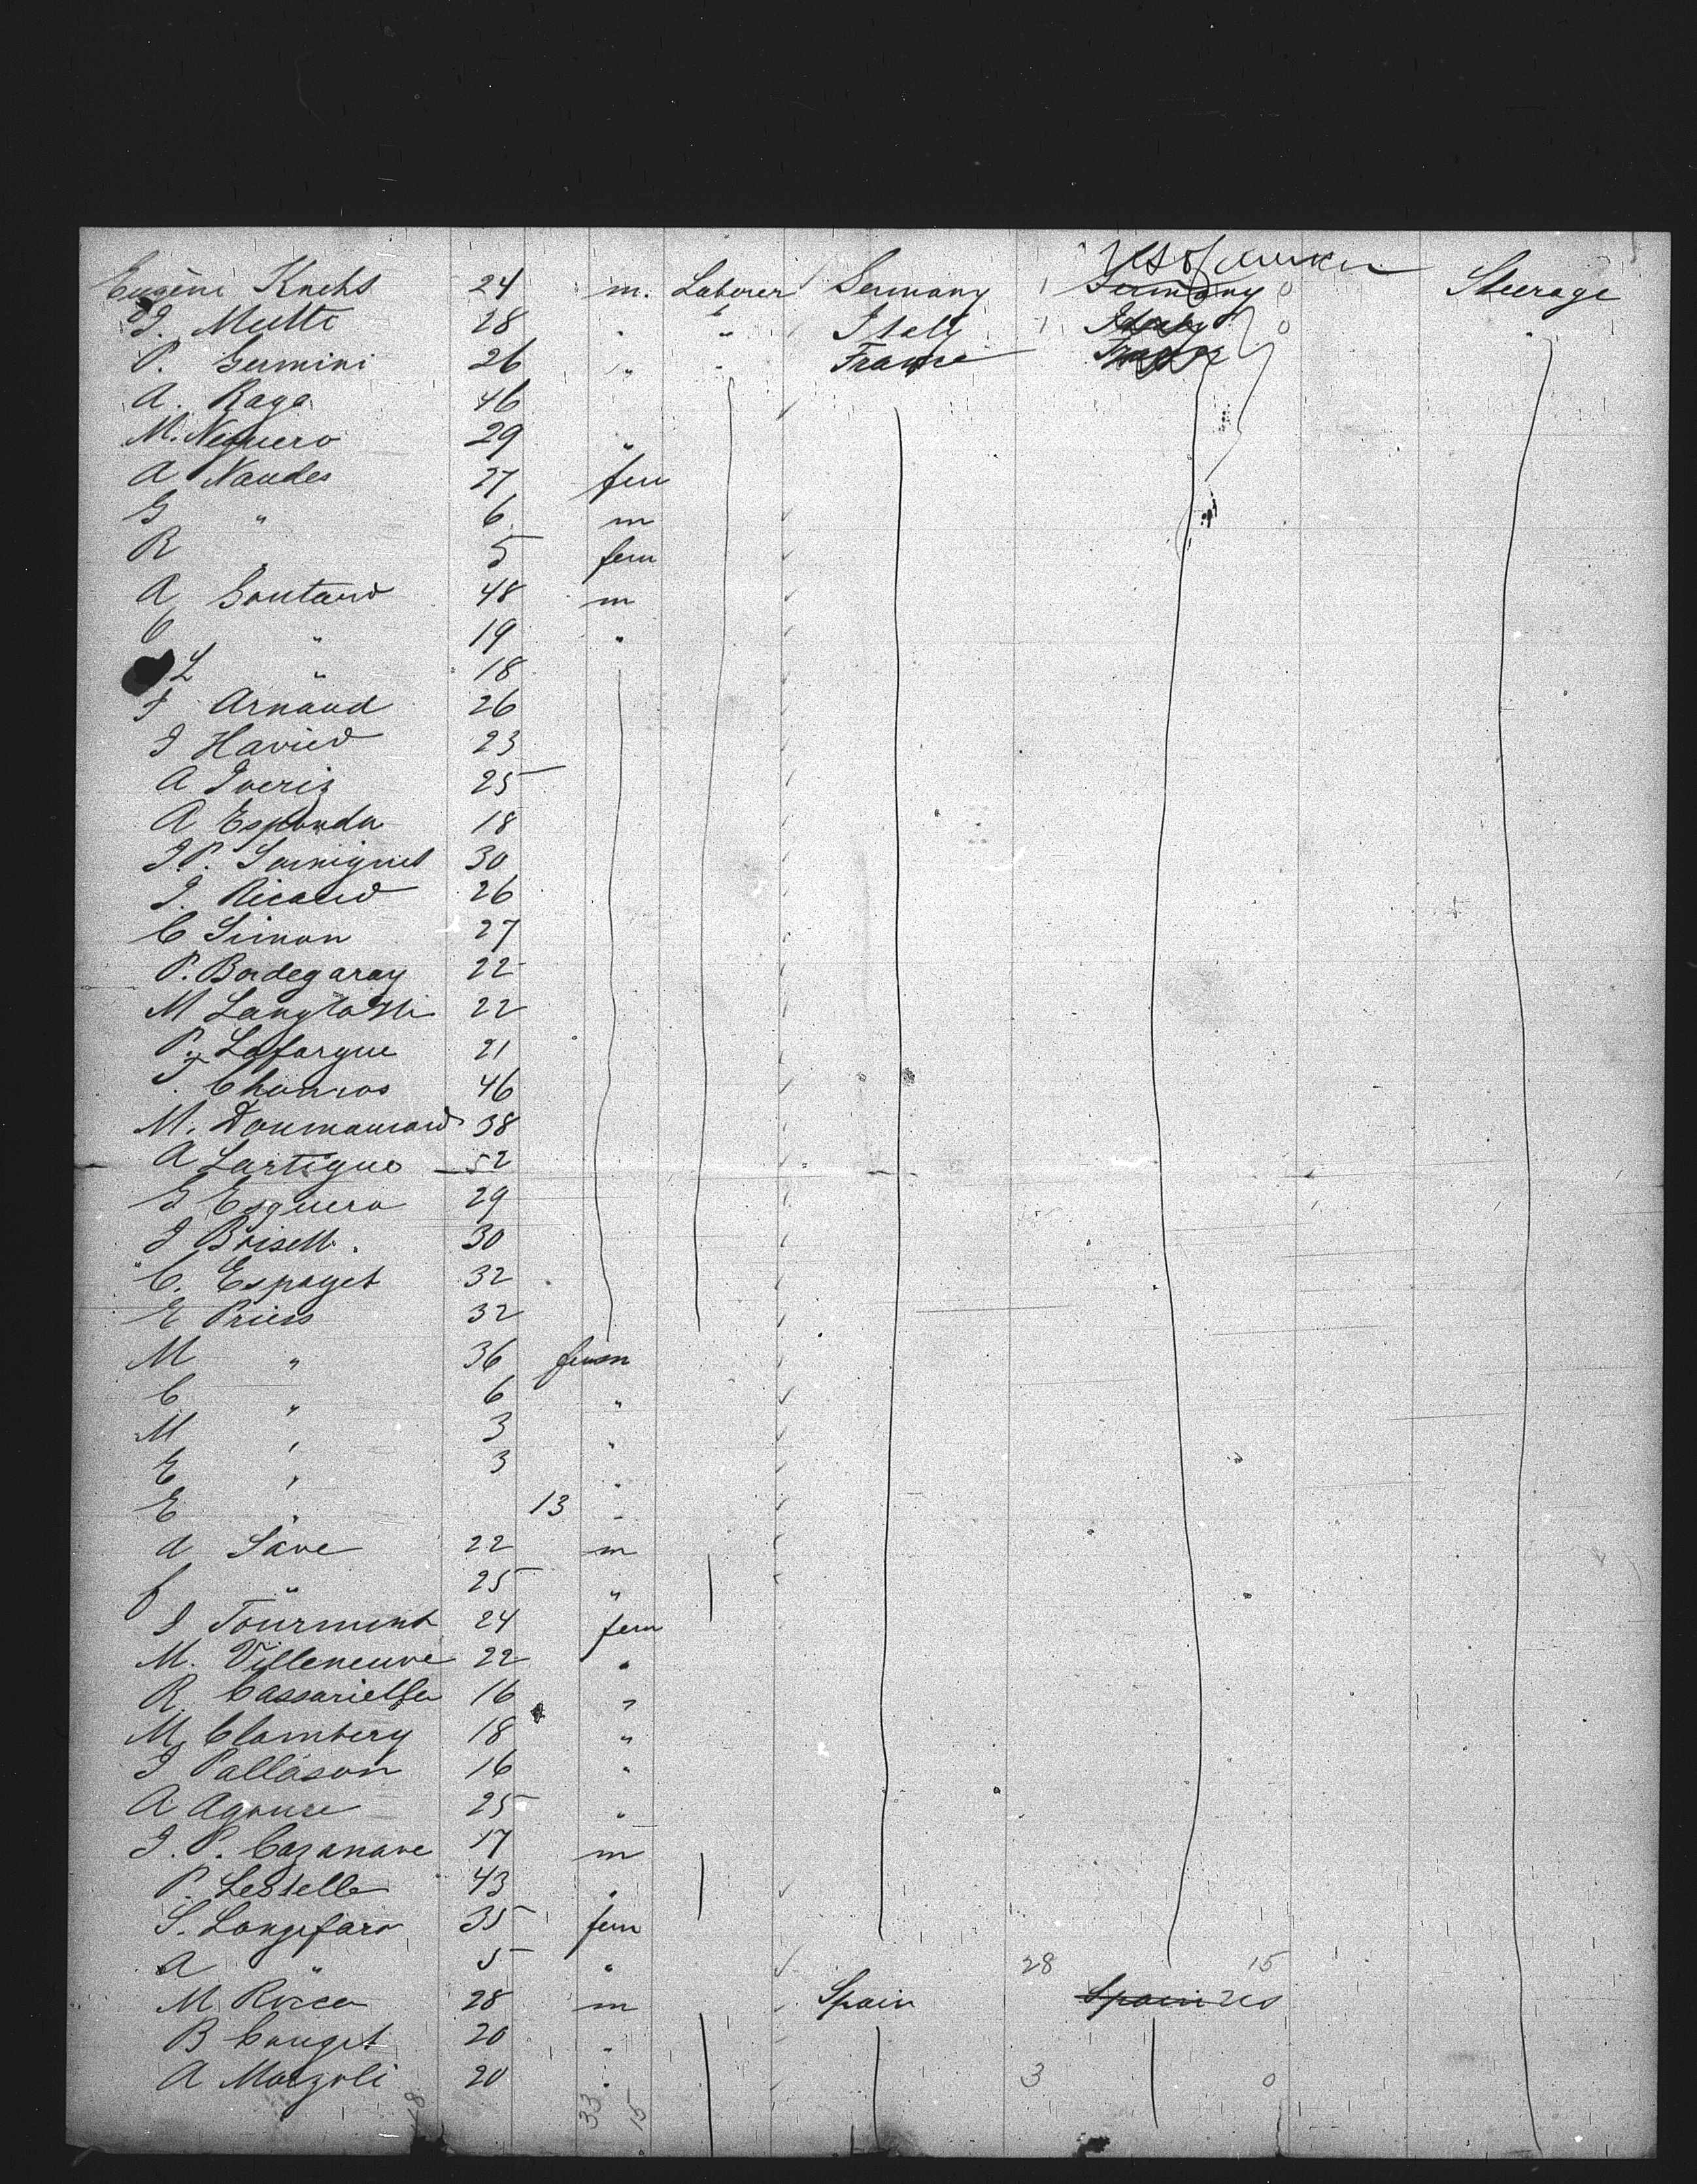 US of America
Eugène Knehs 24 m. Laborer Germany Germany 0 Steerage
J. Mutti 28 . " Italy Italy 0 "
P. Germini 26 " " France France
A. Raga 46
M. Neguero 29 "
A Naudes 27 fem
G " 6 m
R " 5 fem
A Goutard 48 m
C " 19 "
L " 18
F Arnaud 26
J Havied 23
A Iveriz 25
A Esponda 18
J.P. 30
J. Ricaud 26
C Simon 27
P. Bordegaray 22
M 22
P. Lafargue 21
F. Chounros 46
M. 38
A Lartigue 52
G Esguero 29
J 30
C. Espaget 32
E Priess 32
M " 36 fem
C " 6 "
M " 3 "
E " 3 "
E " 13 "
A Save 22 m
C " 25 "
J Tourment 24 fem
M. Villeneuve 22 "
R. 16 "
M. Clambery 18 "
J Pallason 16 "
A Agouse 25 "
J. P. Cazanave 17 m
P. Lestelle 43 "
S. Longefaro 35 fem
A " 5 " 28 15
M Rocca 28 m Spain Spain US
B Couget 20 "
A Marzoli 20 " 3 0
48 33 15